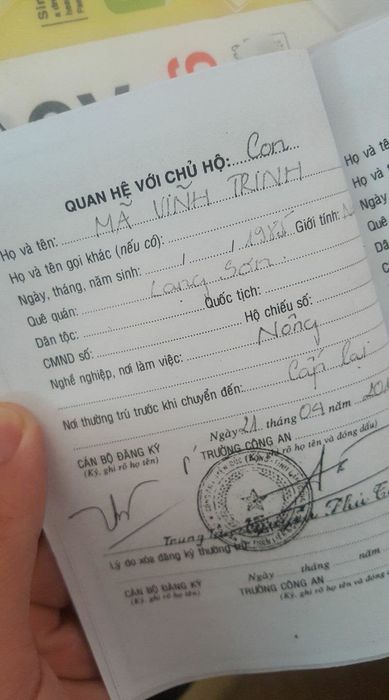 QUAN HỆ VỚI CHỦ HỘ: Con
Họ và tên: MÃ VĨNH TRINH
Họ và tên gọi khác (nếu có):
Ngày, tháng, năm sinh: / / 1985 Giới tính: N
Quê quán: Lạng Sơn
Dân tộc: Quốc tịch:
CMND số: Hộ chiếu số:
Nghề nghiệp, nơi làm việc: Nông
Nơi thường trú trước khi chuyển đến: Cấp lại
Ngày 21 tháng 09 năm 201
CÁN BỘ ĐĂNG KÝ
(Ký, ghi rõ họ tên)
TRƯỞNG CÔNG AN
(Ký, ghi rõ họ tên và đóng dấu)
Trung tá
Lý do xóa đăng ký thường trú
Ngày tháng năm
CÁN BỘ ĐĂNG KÝ
(Ký, ghi rõ họ tên)
TRƯỞNG CÔNG AN
(Ký, ghi rõ họ tên và đóng
Họ và tê
Họ và t
Ngày
Quê
Dâ
C